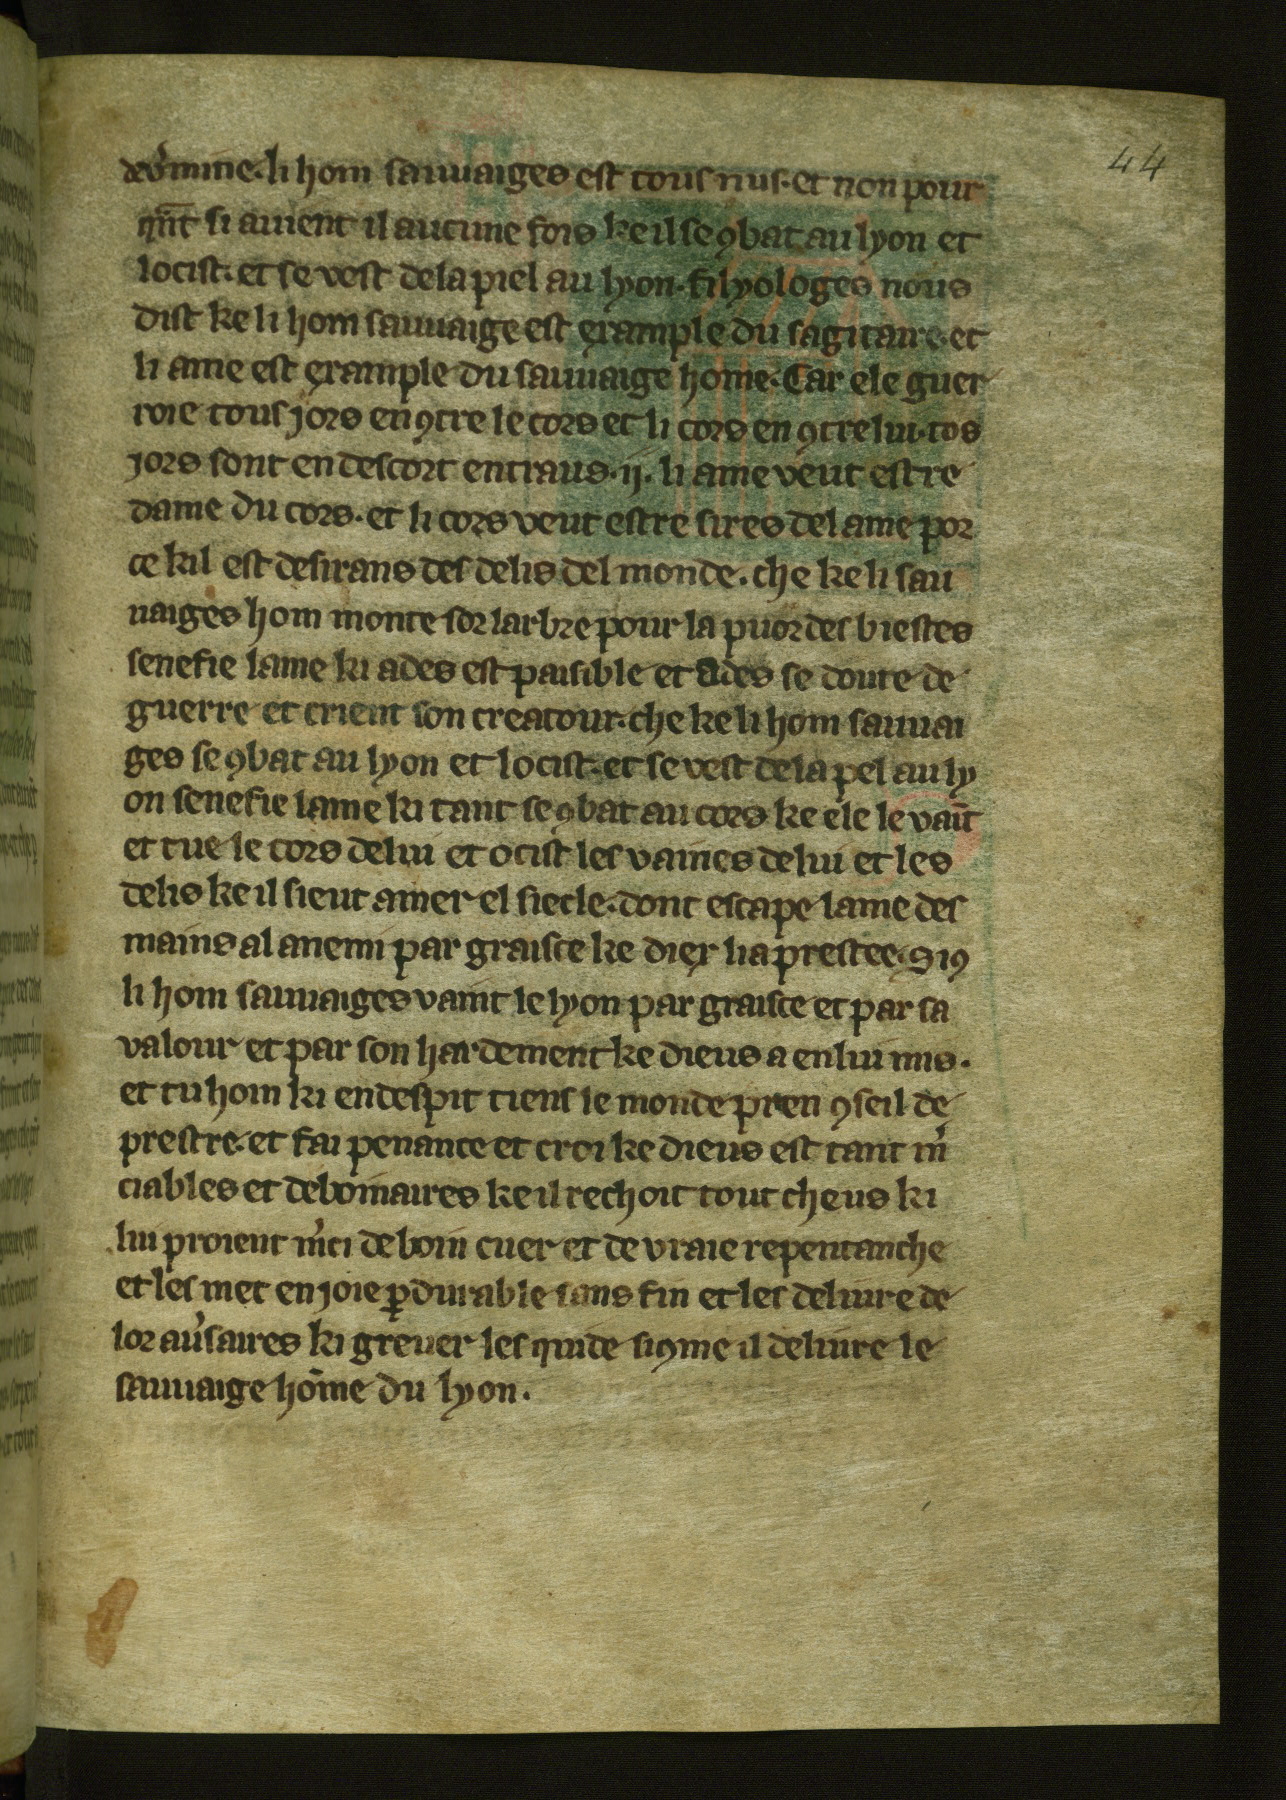 44
de v̓mine. li hom sauuaiges est tous nus. et non pour
qñt si auient il aucune fois ke il se ꝯbat au lyon et
locist. et se vest de la piel au lyon. filyologes nous
dist ke li hom sauuaige est example du sagitaire. et
li ame est example du sauuaige home. Car ele guer
roie tous jors en ꝯtre le cors et li cors en ꝯtre lui. tos
jors sont en descort entraus .ij. li ame veut estre
dame du cors. et li cors veut estre sires del ame por
ce kil est desirans des delis del monde. che ke li sau
uaiges hom monte sor larbre pour la puor des biestes
senefie lame ki ades est paisible et ades se doute de
guerre et crient son creatour. che ke li hom sauuai
ges se ꝯbat au lyon et locist. et se vest de la pel au ly
on senefie lame ki tant se ꝯbat au cors ke ele le vaīt
et tue le cors de lui et ocist les vaines de lui et les
delis ke il sieut amer el siecle. dont escape lame des
mains al anemi par graisce ke diex lia prestee. Si ꝯ
li hom sauuaiges vaint le lyon par graisce et par sa
valour et par son hardement ke dieus a en lui mis.
et tu hom ki en despit tiens le monde pren ꝯseil de
prestre. et fai penance et croi ke dieus est tant m̓
ciables et debonaires ke il rechoit tout cheus ki
lui proient m̓ci de boin cuer et de vraie repentanche
et les met en joie ꝑdurable sans fin et les deliure de
lor au̓saires ki greuer les quide si ꝯme il deliure le
sauuaige hōme du lyon.